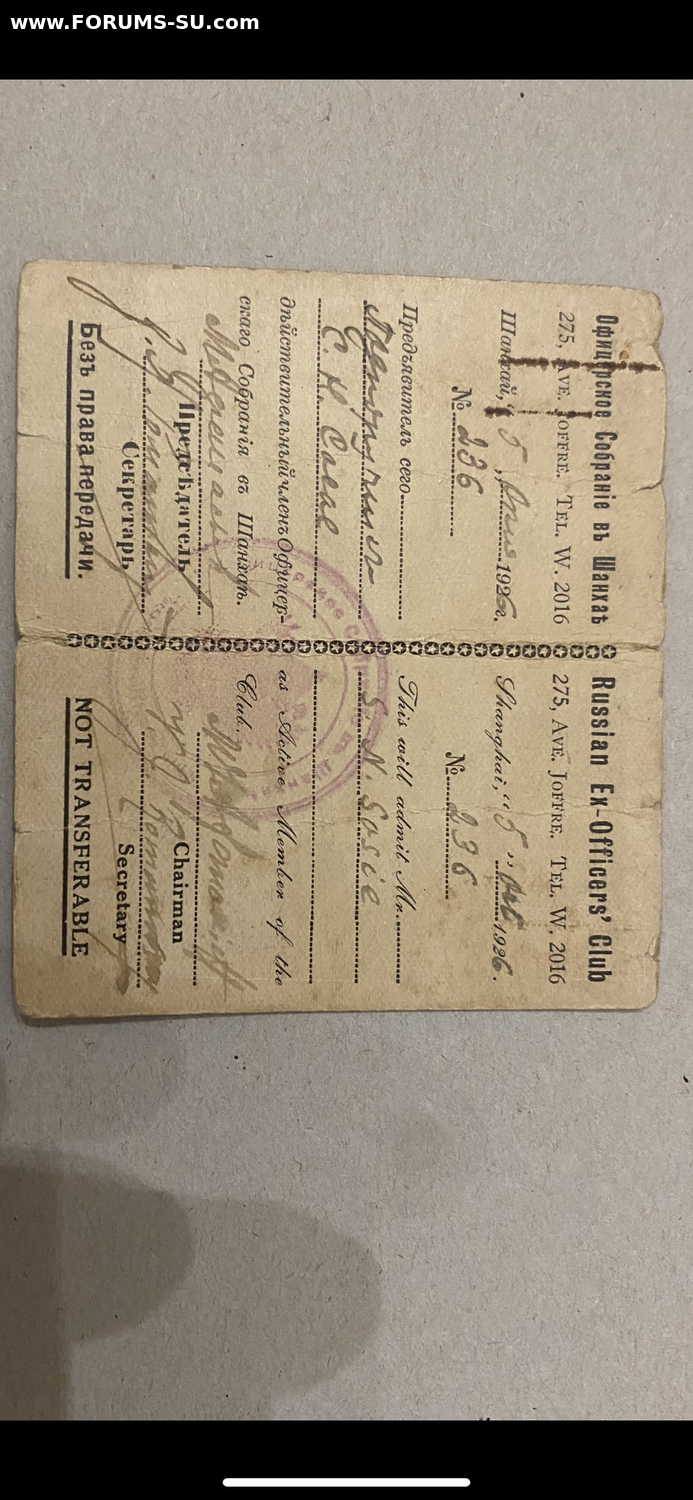 www.FORUMS-SU.com
Офицерское Собранiе въ Шанхаѣ
275, AVE. JOFFRE. TEL. W. 2016
Шанхай, „5" 1926г.
№ 236
Предъявитель сего
С. Н.
дѣйствительный членъ Офицер-
скаго Собранiя въ Шанхаѣ.
Предсѣдатель
Секретарь
Безъ права передачи.
Russian Ex-Officers' Club
275, AVE. JOFFRE. TEL. W. 2016
Shanghai, "5" 1926.
№ 236
This will admit Mr.
S. N. Sosic
as Active Member of the
Club.
Chairman
Secretary
NOT TRANSFERABLE